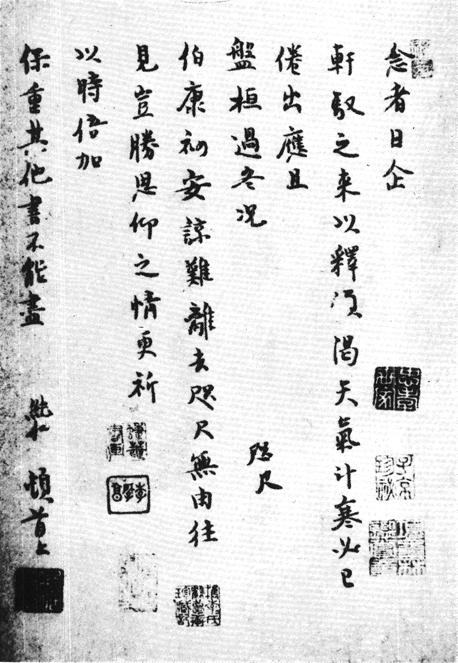 念者日企
軒馭之來以釋傾渴天氣計寒必已
倦出應且
咫尺
盤桓過冬況
伯康初安諒難離去咫尺無由往
見豈勝思仰之情更祈
以時倍加
保重其他書不能盡 純仁 頓首上